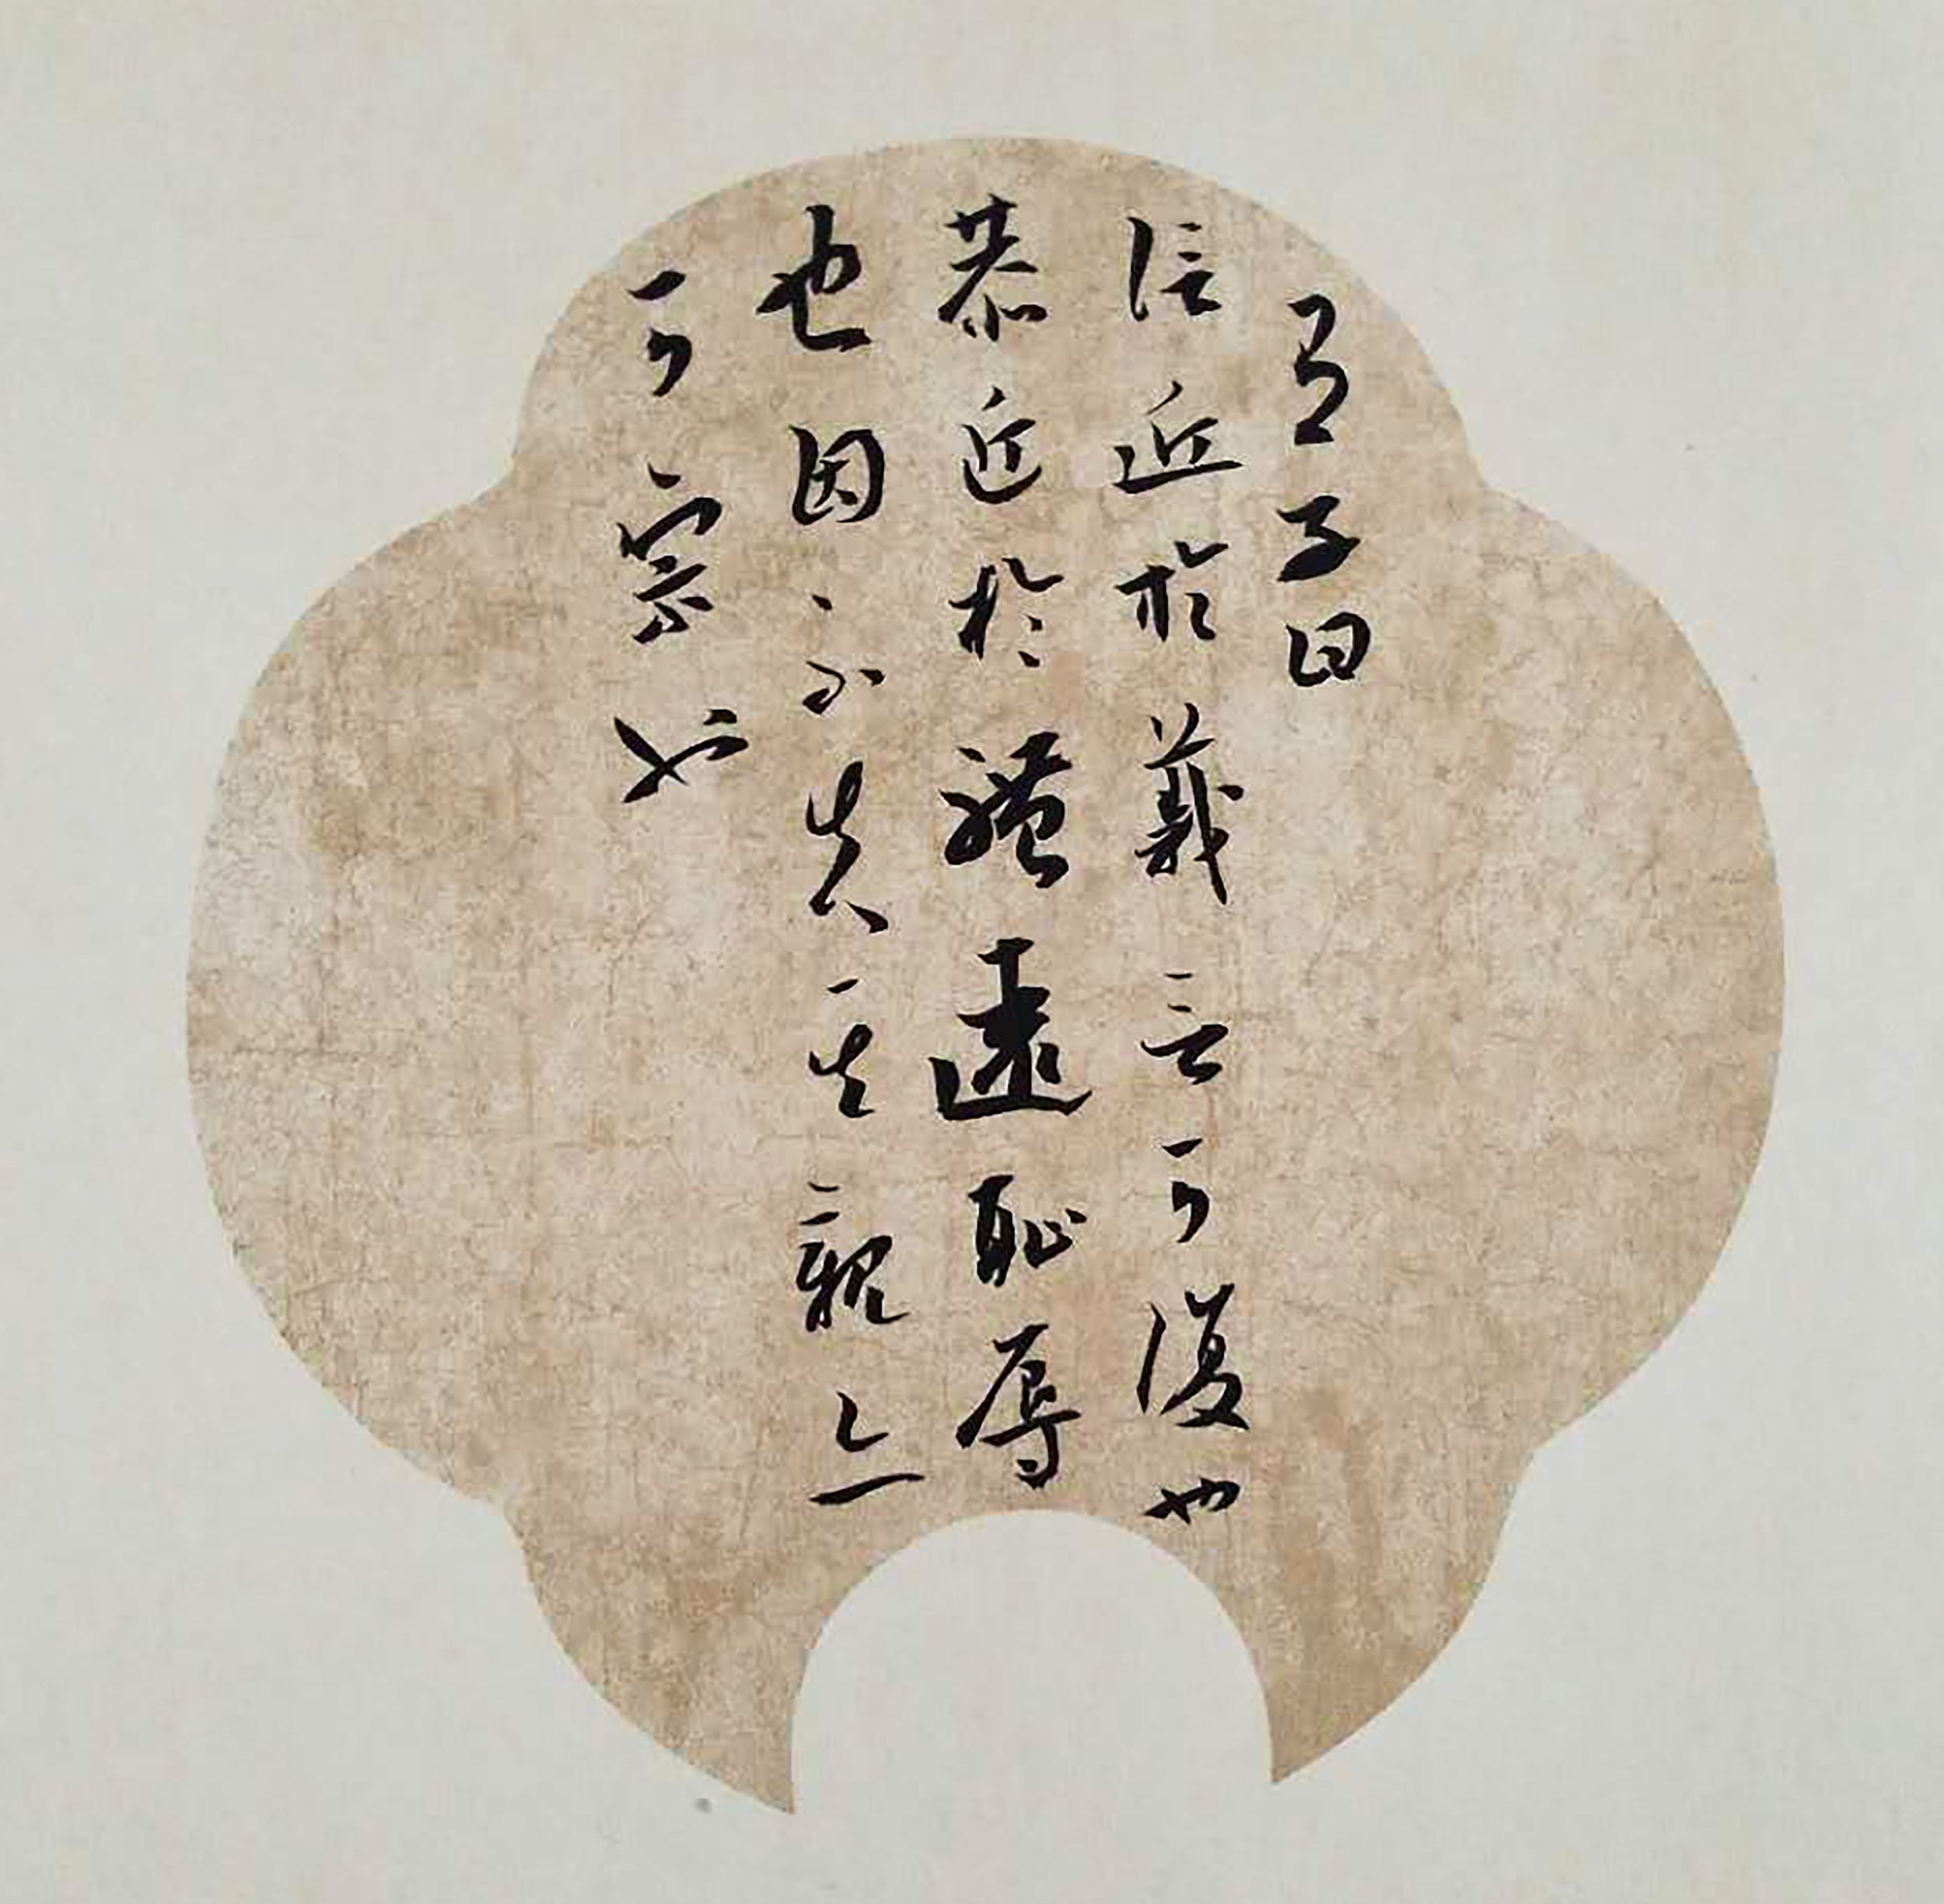 有子曰
信近於義言可復也
恭近於禮遠恥辱
也因不失其親亦
可宗也